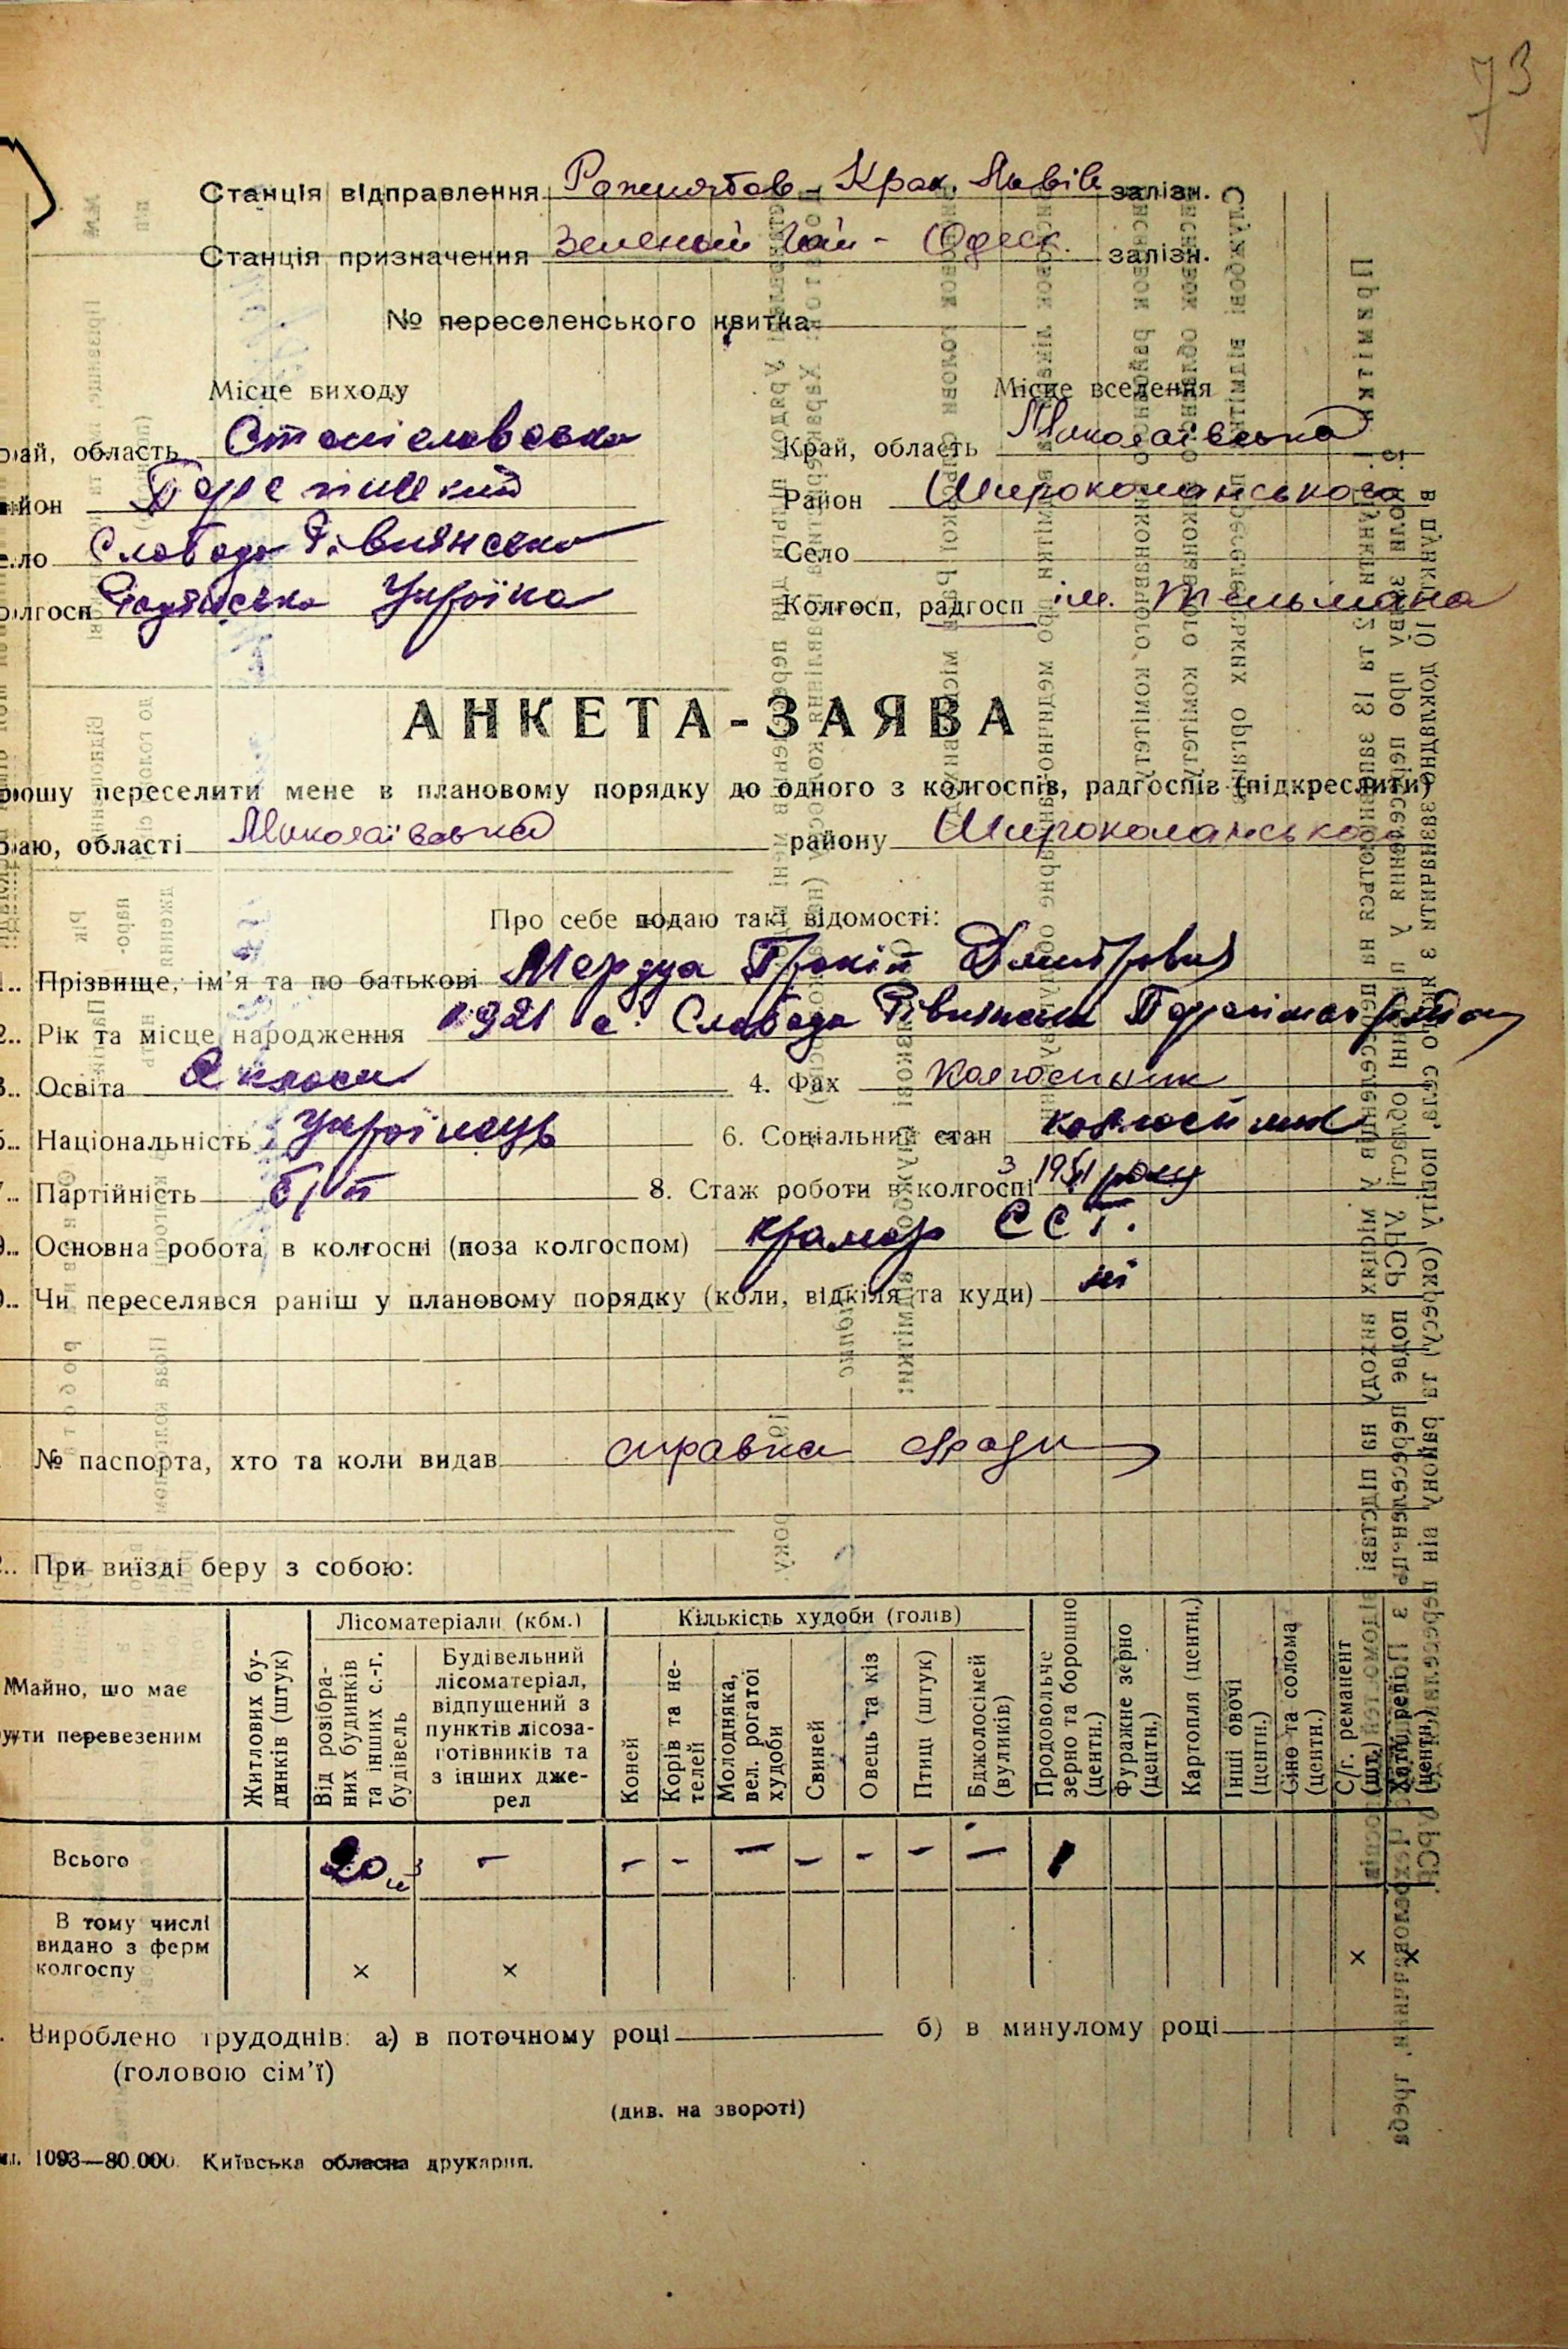 73
Станція відправлення Рожнятов - Крах. Львів залізн.
Станція призначення Зеленый Гай - Одеск. залізн.
№ переселенського квитка
Місце виходу
рай, область Станіславська
район Перегінський
село Слобода Рівнянська
колгосп Радянська Україна
Місце вселення
Край, область Миколаївська
Район Широколанського
Село
Колгосп, радгосп ім. Тельмана
АНКЕТА-ЗАЯВА
рошу переселити мене в плановому порядку до одного з колгоспів, радгоспів (підкреслити)
раю, області Миколаївська району Широколанського
Про себе подаю такі відомості:
1.. Прізвище, ім’я та по батькові Дмитрович
2.. Рік та місце народження 1921 с. Слобода Рівнянська
3.. Освіта класи 4. Фах колгоспник
5.. Національність Українець 6. Соціальний стан колгоспник
7.. Партійність б/п 8. Стаж роботи в колгоспі з року
9.. Основна робота в колгоспі (поза колгоспом) крамар ССТ.
0.. Чи переселявся раніш у плановому порядку (коли, відкіля та куди) ні
№ паспорта, хто та коли видав справка
2.. При виїзді беру з собою:
Майно, що має бути перевезеним
Житлових будинків (штук)
Лісоматеріали (кбм.)
Від розібраних будинків та інших с.-г. будівель
Будівельний лісоматеріал, відпущений з пунктів лісозаготівників та з інших джерел
Кількість худоби (голів)
Коней
Корів та нетелей
Молодняка, вел. рогатої худоби
Свиней
Овець та кіз
Птиці (штук)
Бджолосімей (вуликів)
Продовольче зерно та борошно (центн.)
Фуражне зерно (центн.)
Картопля (центн.)
Інші овочі (центн.)
Сіно та солома (центн.)
С/г. реманент (шт.)
Хатн. речі (центн.)
Всього 20 м³ – – – – – – – –
В тому числі видано з ферм колгоспу × × × ×
. Вироблено трудоднів: а) в поточному році б) в минулому році
(головою сім’ї)
(див. на звороті)
1093—80.000. Київська обласна друкарня.